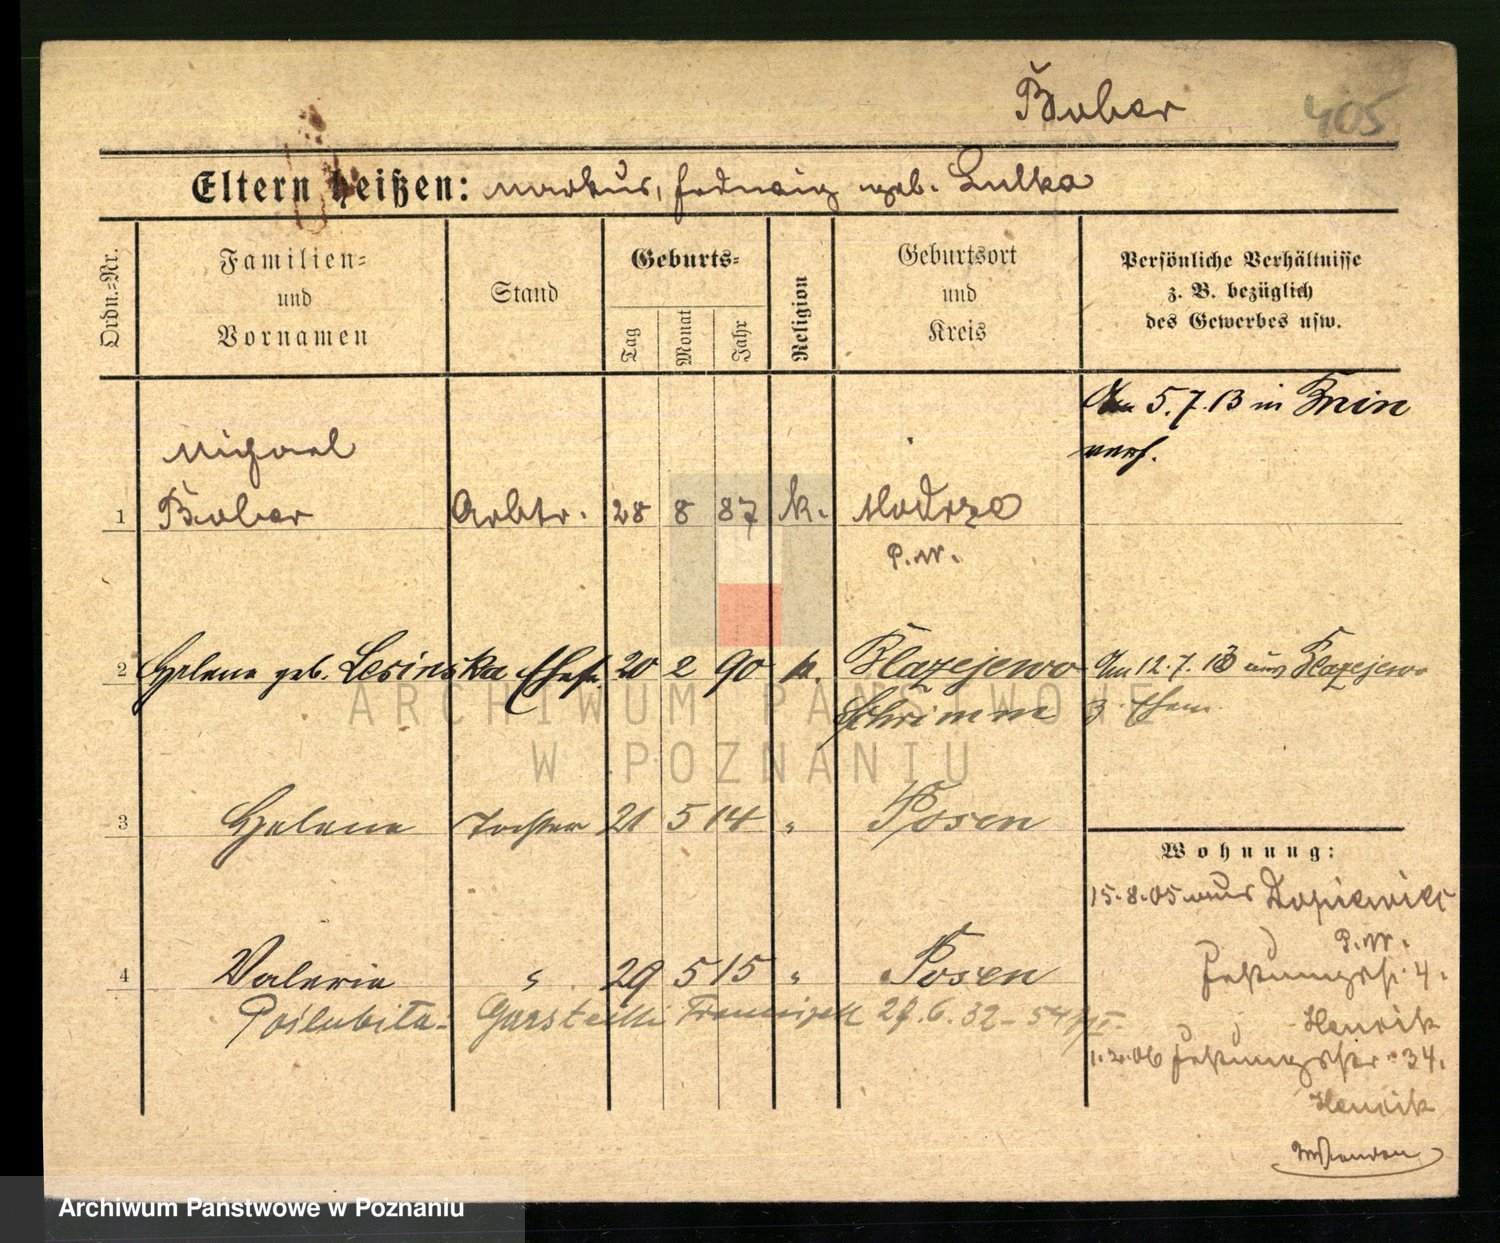 Bober 405
Eltern heißen: Markus, Hedwig geb. Lulka
Ordn.=Nr.
Familien=
und
Vornamen
Stand
Geburts=
Tag
Monat
Jahr
Religion
Geburtsort
und
Kreis
Persönliche Verhältnisse
z. B. bezüglich
des Gewerbes usw.
Am 5.7.13 in Znin
verh.
Michael
1 Bober Arbtr. 28 8 87 k. Modrze
P.W.
2 Helene geb. Lesinska Ehefr. 20 2 90 k. Blazejewo Am 12.7.13 aus Blazejewo
Schrimm z. Ehem.
3 Helene Tochter 21 5 14 " Posen
Wohnung:
15.8.05 aus Dopiewiec
P.W.
4 Valerie " 29 5 15 " Posen
Festungsstr. 4.
27.6.32
Henrik
1.2.06 Festungsstr. 34.
Henrik
ARCHIWUM PAŃSTWOWE
W POZNANIU
Archiwum Państwowe w Poznaniu